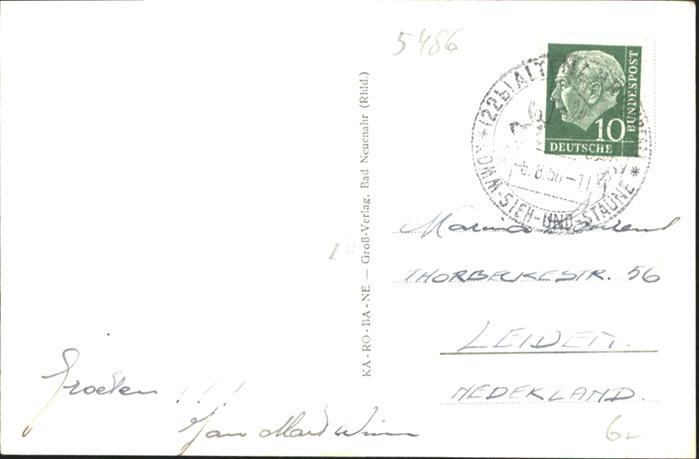 5486
10
DEUTSCHE
BUNDESPOST
(22b) ALT
8.56-17
KOMM-SIEH-UND-STAUNE
KA-RO-BA-NE — Groß-Verlag, Bad Neuenahr (Rhld.)
THORBECKESTR. 56
LEIDEN.
NEDERLAND.
Groeten !!!
Jan
6-